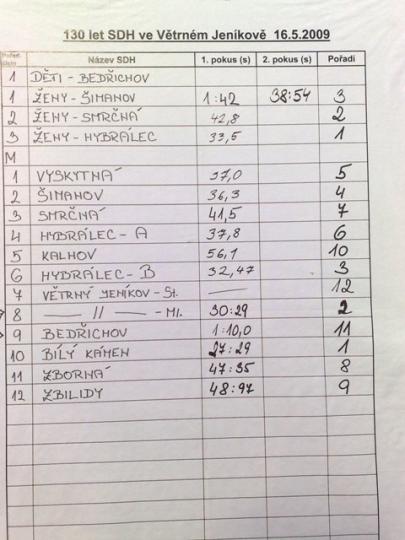 130 let SDH ve Větrném Jeníkově 16.5.2009
Název SDH 1. pokus (s) 2. pokus (s) Pořadí
1 DĚTI - BEDŘICHOV
1 ŽENY - ŠIMANOV 1:42 38:54 3
2 ŽENY - SMRČNÁ 42,8 2
3 ŽENY - HYBRÁLEC 33,5 1
M
1 VYSKYTNÁ 37,0 5
2 ŠIMANOV 36,3 4
3 SMRČNÁ 41,5 7
4 HYBRÁLEC - A 37,8 6
5 KALHOV 56,1 10
6 HYBRÁLEC - B 32,47 3
7 VĚTRNÝ JENÍKOV - St. — 12
8 — // — - Ml. 30:29 2
9 BEDŘICHOV 1:10,0 11
10 BÍLÝ KÁMEN 27:29 1
11 ZBORNÁ 47:35 8
12 ZBILIDY 48:97 9